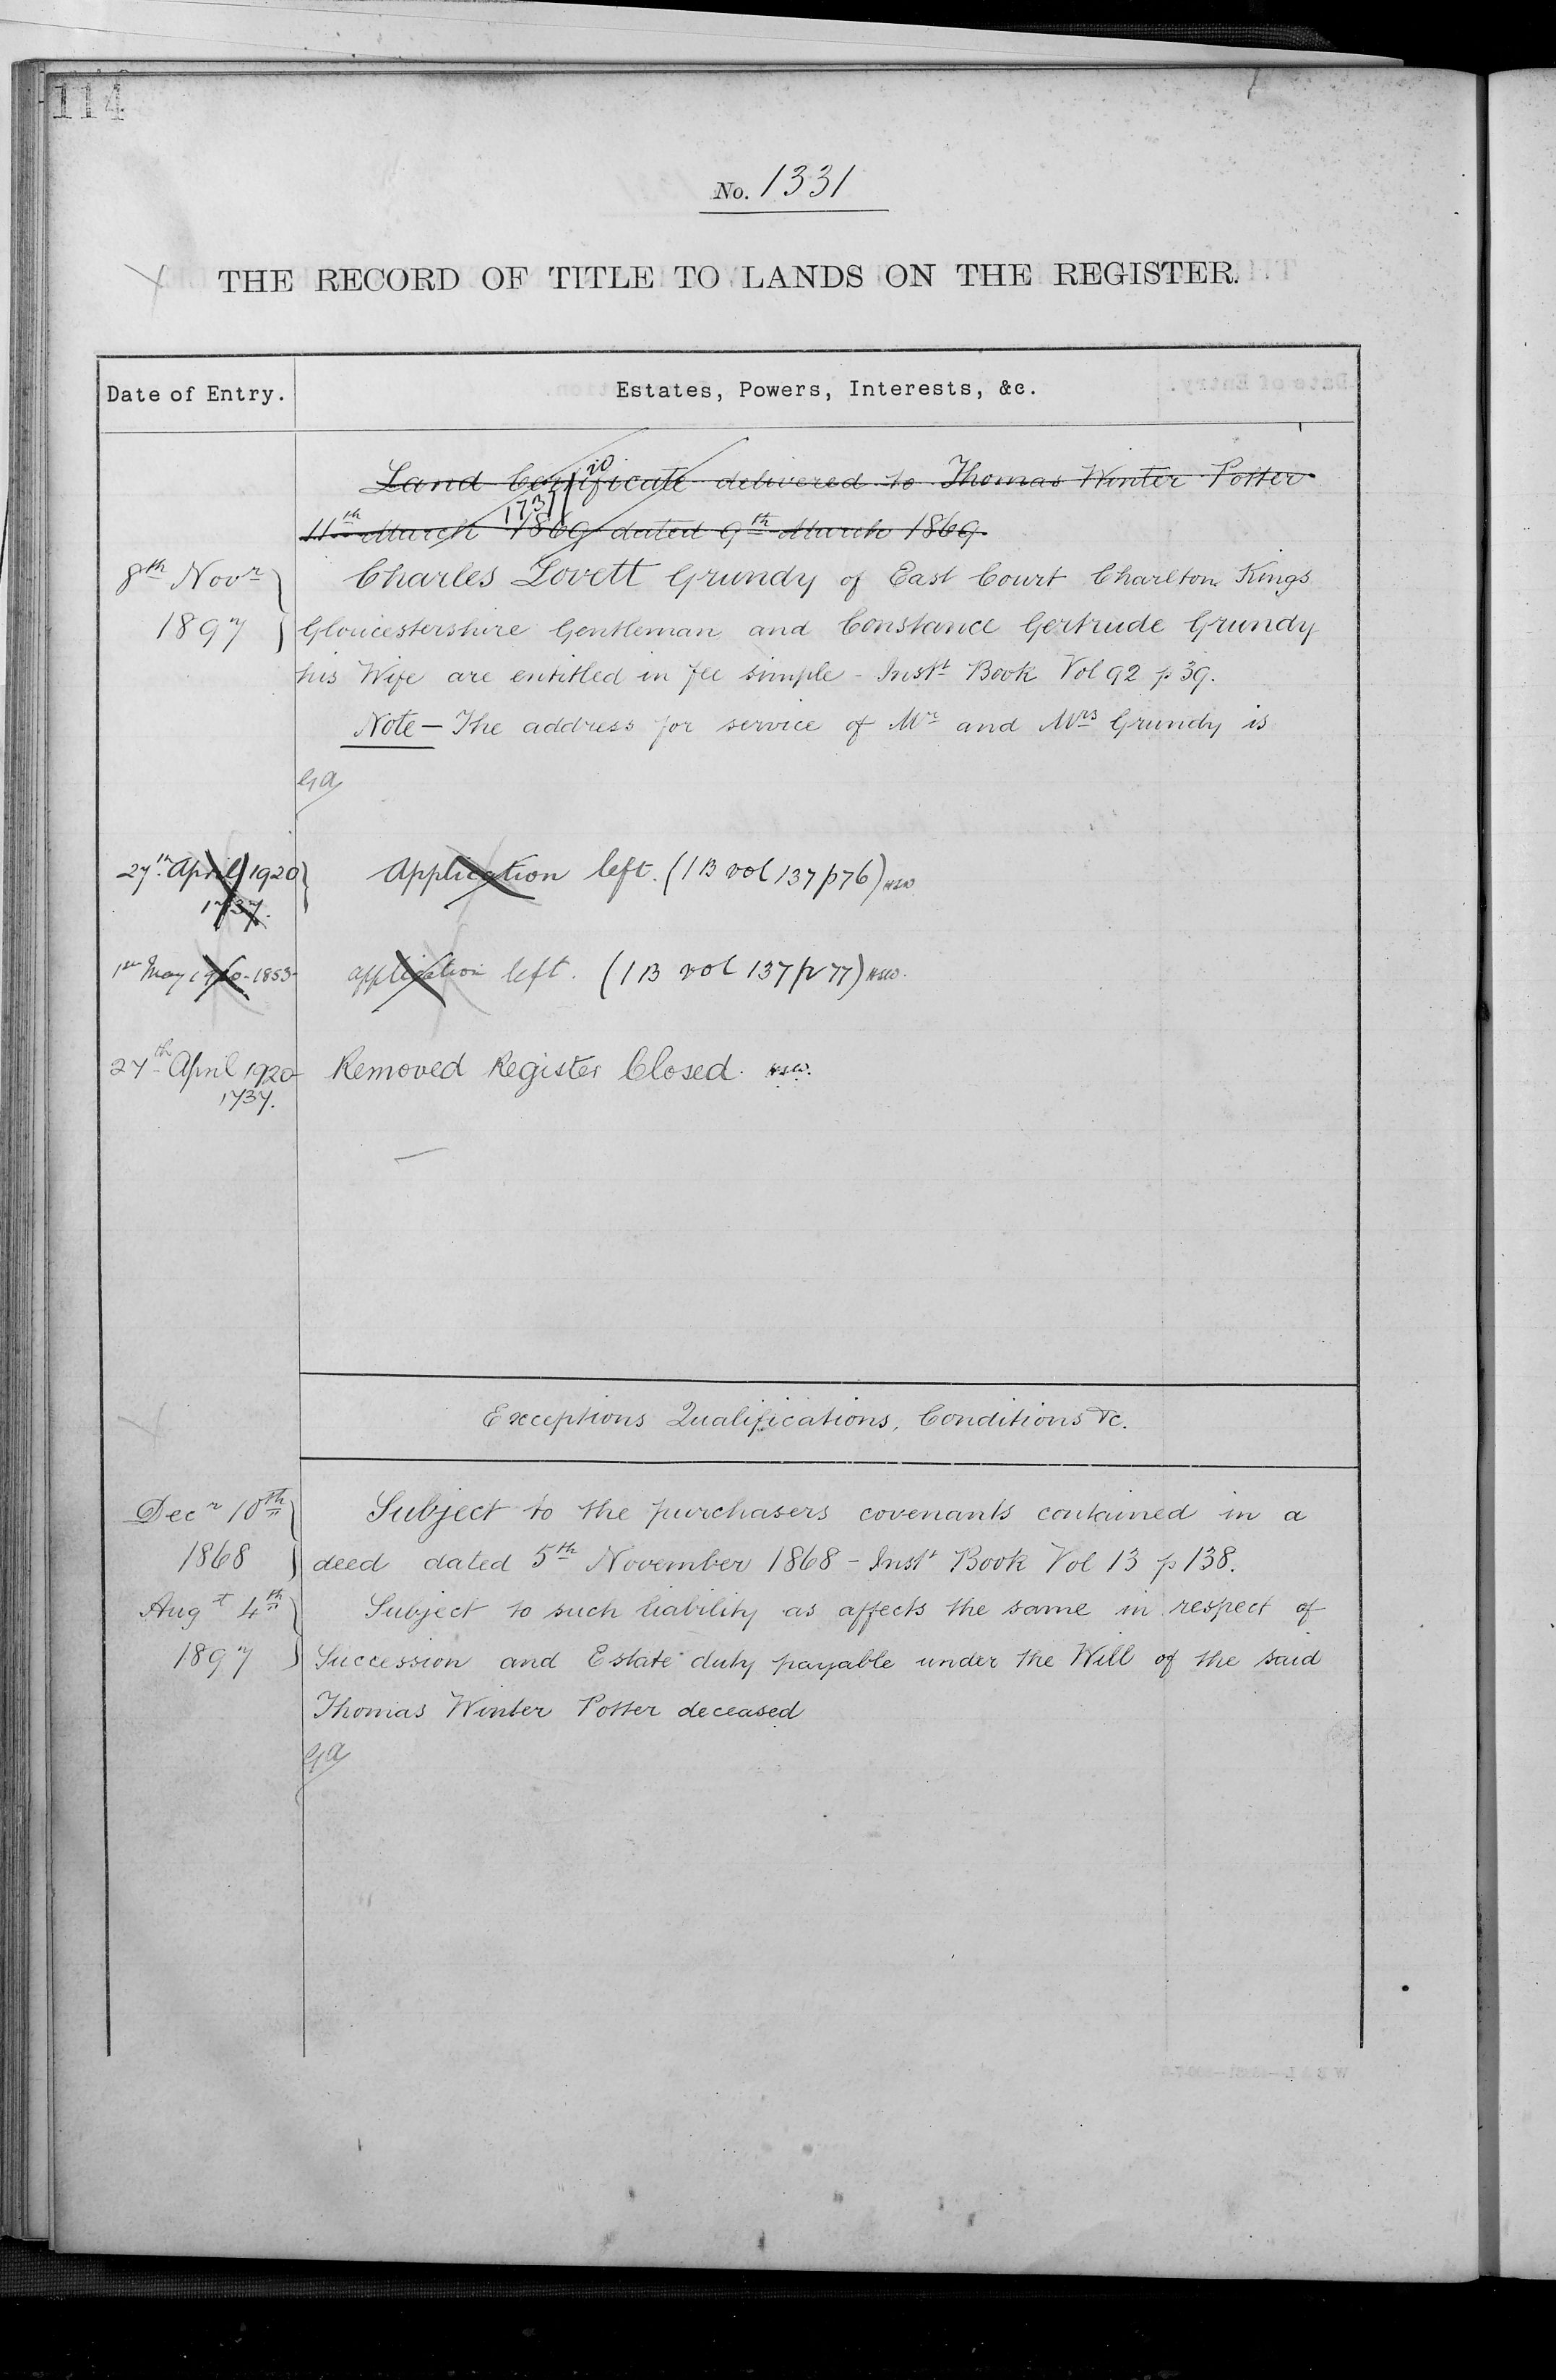 114
No. 1331
THE RECORD OF TITLE TO LANDS ON THE REGISTER.
Date of Entry. Estates, Powers, Interests, &c.
Land Certificate delivered to Thomas Winter Potter
11th March 1869 dated 9th March 1869.
8th Novr Charles Lovett Grundy of East Court Charlton Kings
1897 Gloucestershire Gentleman and Constance Gertrude Grundy
his Wife are entitled in fee simple - Instt Book Vol 92 p 39.
Note - The address for service of Mr and Mrs Grundy is
GA
27th April 1920 Application left. (IB vol 137 p76) HSW
1737.
1st May 1920-1853- application left. (IB vol 137 p 77) HSW.
27th April 1920 Removed Register Closed. HSW.
1737.
Exceptions Qualifications, Conditions &c.
Decr 10th Subject to the purchasers covenants contained in a
1868 deed dated 5th November 1868 - Instt Book Vol 13 p 138.
Augt 4th Subject to such liability as affects the same in respect of
1897 Succession and Estate duty payable under the Will of the said
Thomas Winter Potter deceased
GA